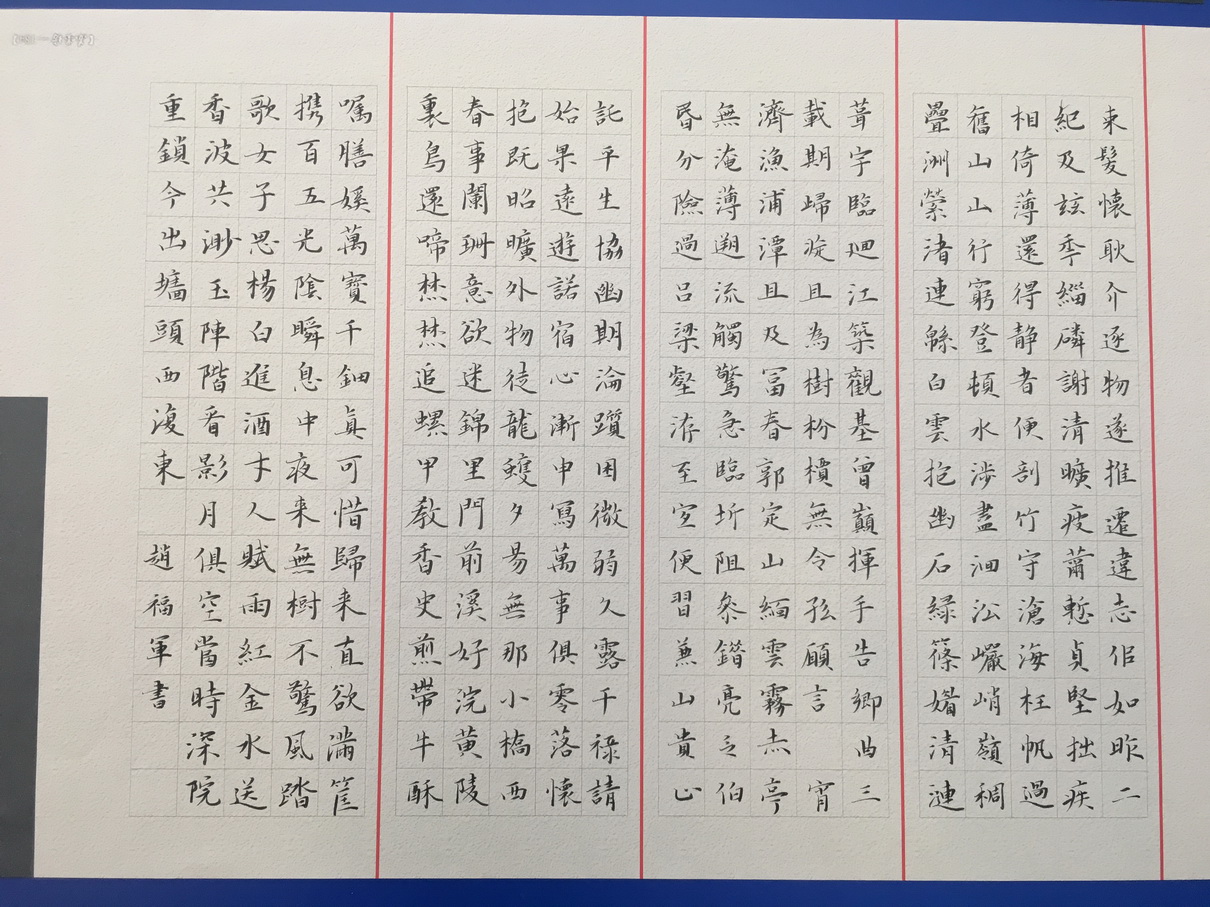 束髮懷耿介逐物遂推遷違志佀如昨二
紀及玆秊緇磷謝清曠疲薾慙貞堅拙疾
相倚薄還得静者便剖竹守滄海枉帆過
舊山山行窮登頓水涉盡洄㳂巖峭嶺稠
疊洲縈渚連緜白雲抱幽石緑篠媚清漣
葺宇臨廻江築觀基曾巔揮手告鄉曲三
載期歸旋且為樹枌檟無令孤願言 宵
濟漁浦潭旦及富春郭定山緬雲霧赤亭
無淹薄遡流觸驚急臨圻阻参錯亮乏伯
昏分險過呂梁壑洊至宜便習兼山貴止
託平生協幽期淪躓困微弱久露千祿請
始果遠遊諾宿心漸申寫萬事俱零落懷
抱既昭曠外物徒龍蠖夕易無那小橋西
春事闌珊意欲迷錦里門前溪好浣黄陵
裏鳥還啼焚焚追螺甲教香史煎帶牛酥
囑膳媛萬寶千鈿真可惜歸来直欲滿筐
携百五光陰瞬息中夜来無樹不驚風踏
歌女子思楊白進酒才人賦雨紅金水送
香波共渺玉陣階看影月俱空當時深院
重鎖今出墻頭西復東 趙福軍書